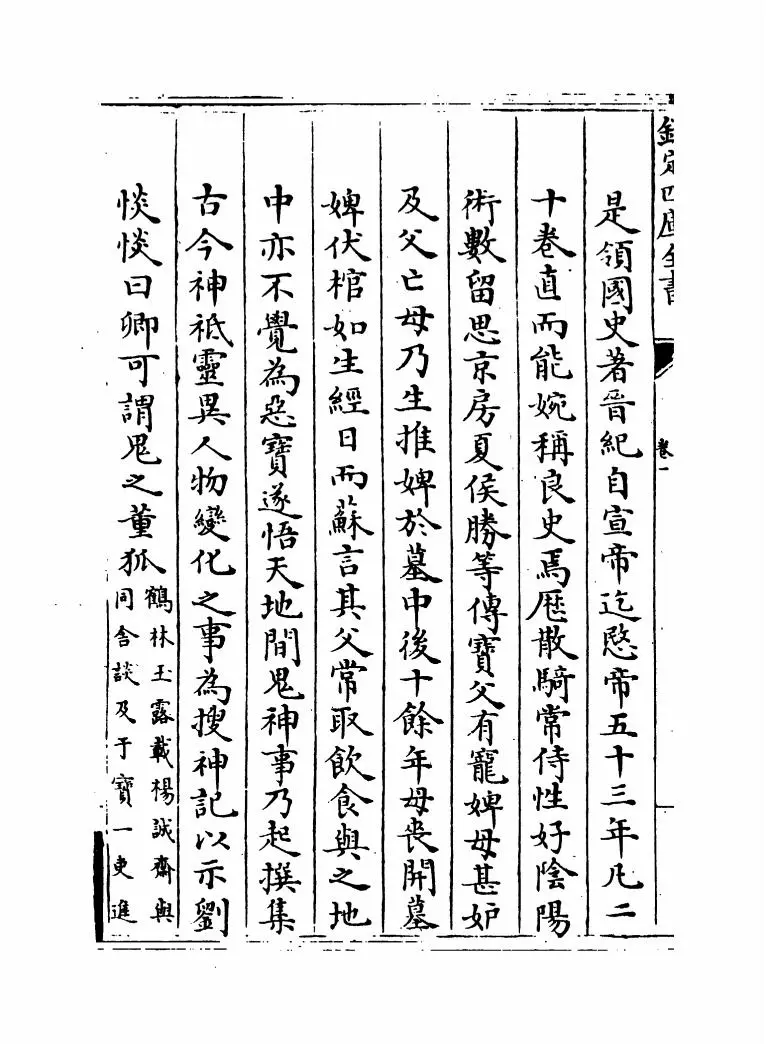 欽定四庫全書
卷一
是領國史著晉紀自宣帝迄愍帝五十三年凡二
十卷直而能婉稱良史焉歷散騎常侍性好陰陽
術數留思京房夏侯勝等傳寶父有寵婢母甚妒
及父亡母乃生推婢於墓中後十餘年母喪開墓
婢伏棺如生經日而蘇言其父常取飲食與之地
中亦不覺為惡寶遂悟天地間鬼神事乃起撰集
古今神祇靈異人物變化之事為搜神記以示劉
惔惔曰卿可謂鬼之董狐
鶴林玉露載楊誠齋與
同舍談及于寶一吏進